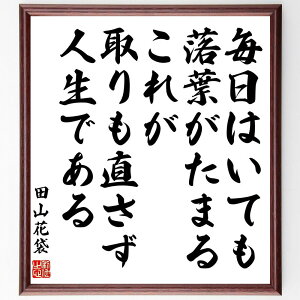 毎日はいても
落葉がたまる
これが
取りも直さず
人生である
田山花袋